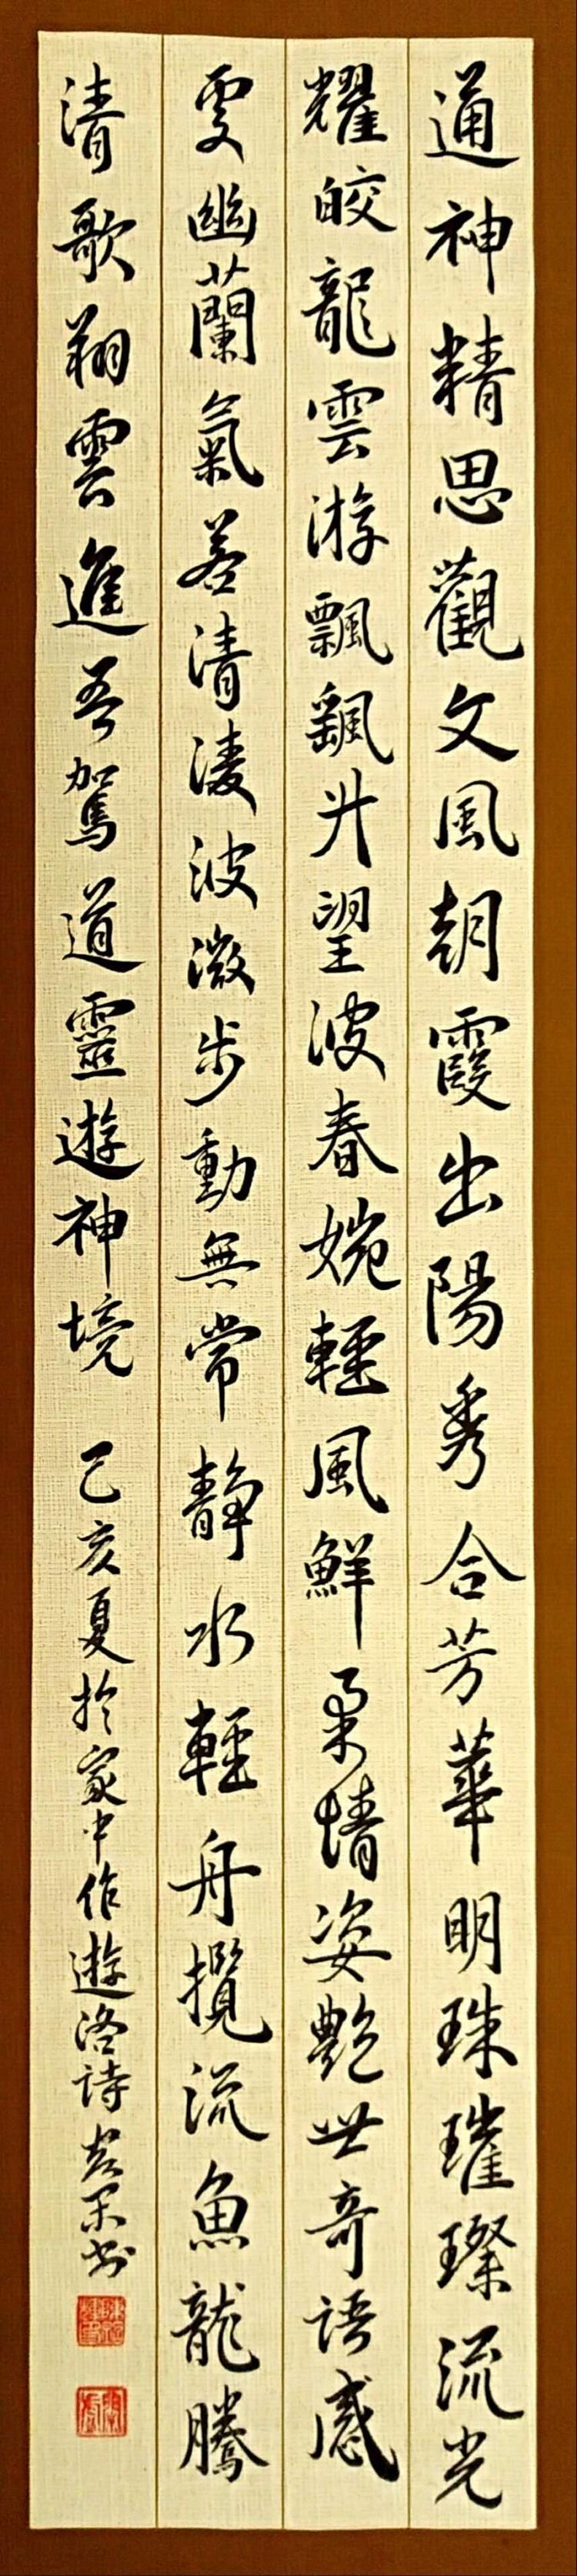 通神精思觀文風朝霞出陽秀合芳華明珠璀璨流光
耀皎龍雲游飄飖升望波春婉輕風鮮柔情姿艷世奇語感
雯幽蘭氣若清淩波微步動無常靜水輕舟攬流魚龍騰
清歌翔雲進吾駕道靈遊神境 己亥夏於家中作遊洛詩 書